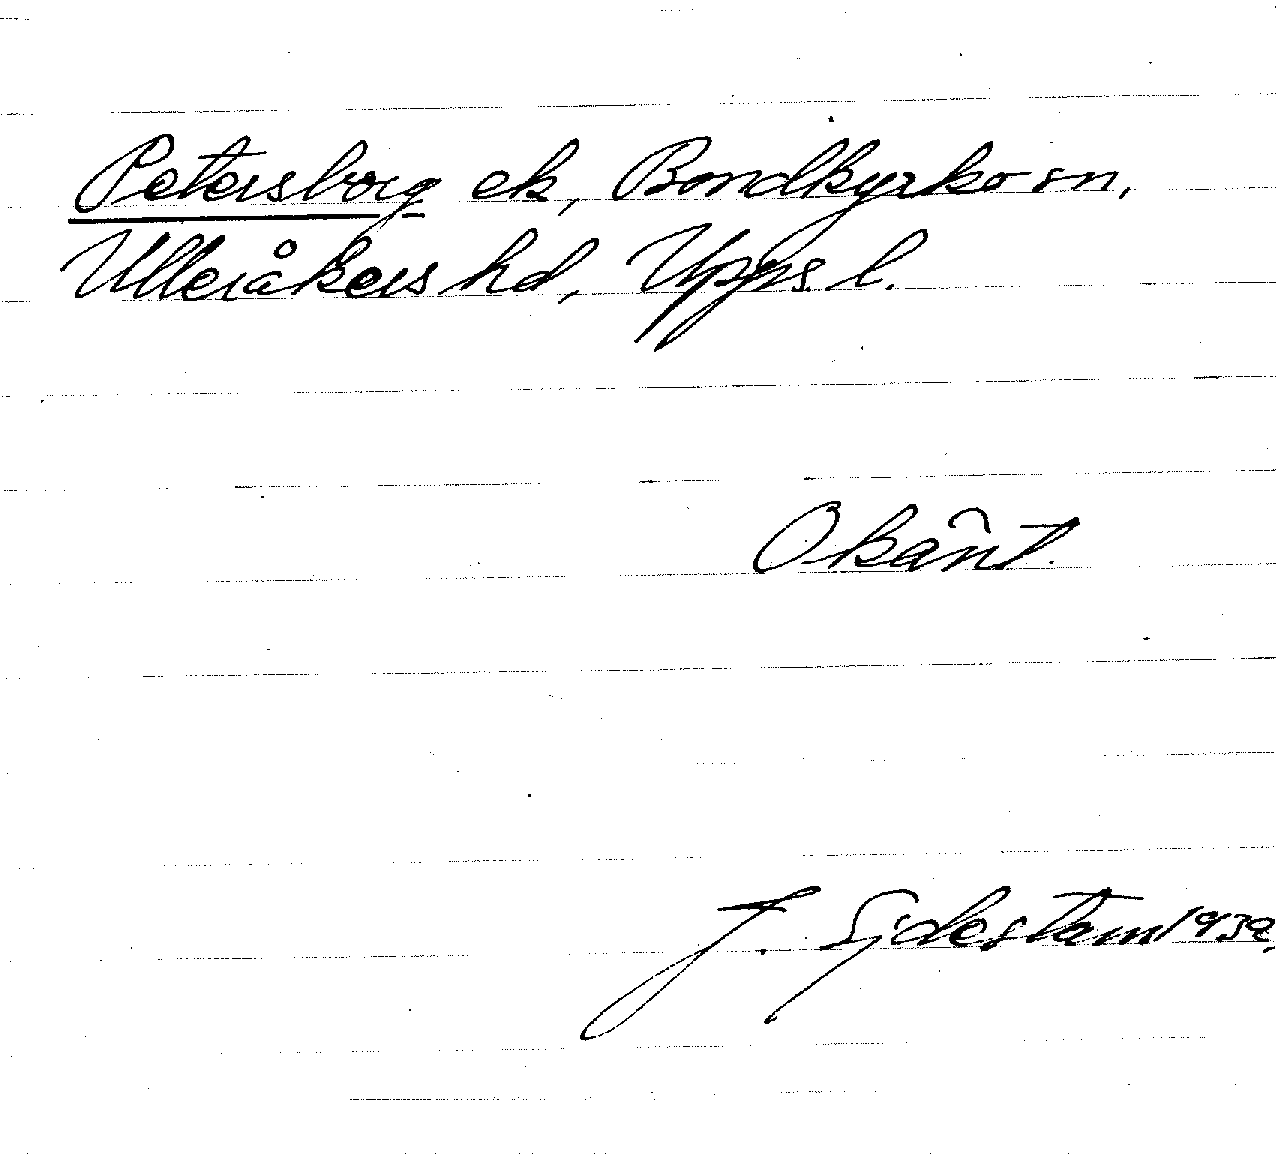 Petersborg ek, Bondkyrko sn,
Ulleråkers hd, Upps. l.
Okänt.
J. Sjdestam 1939.